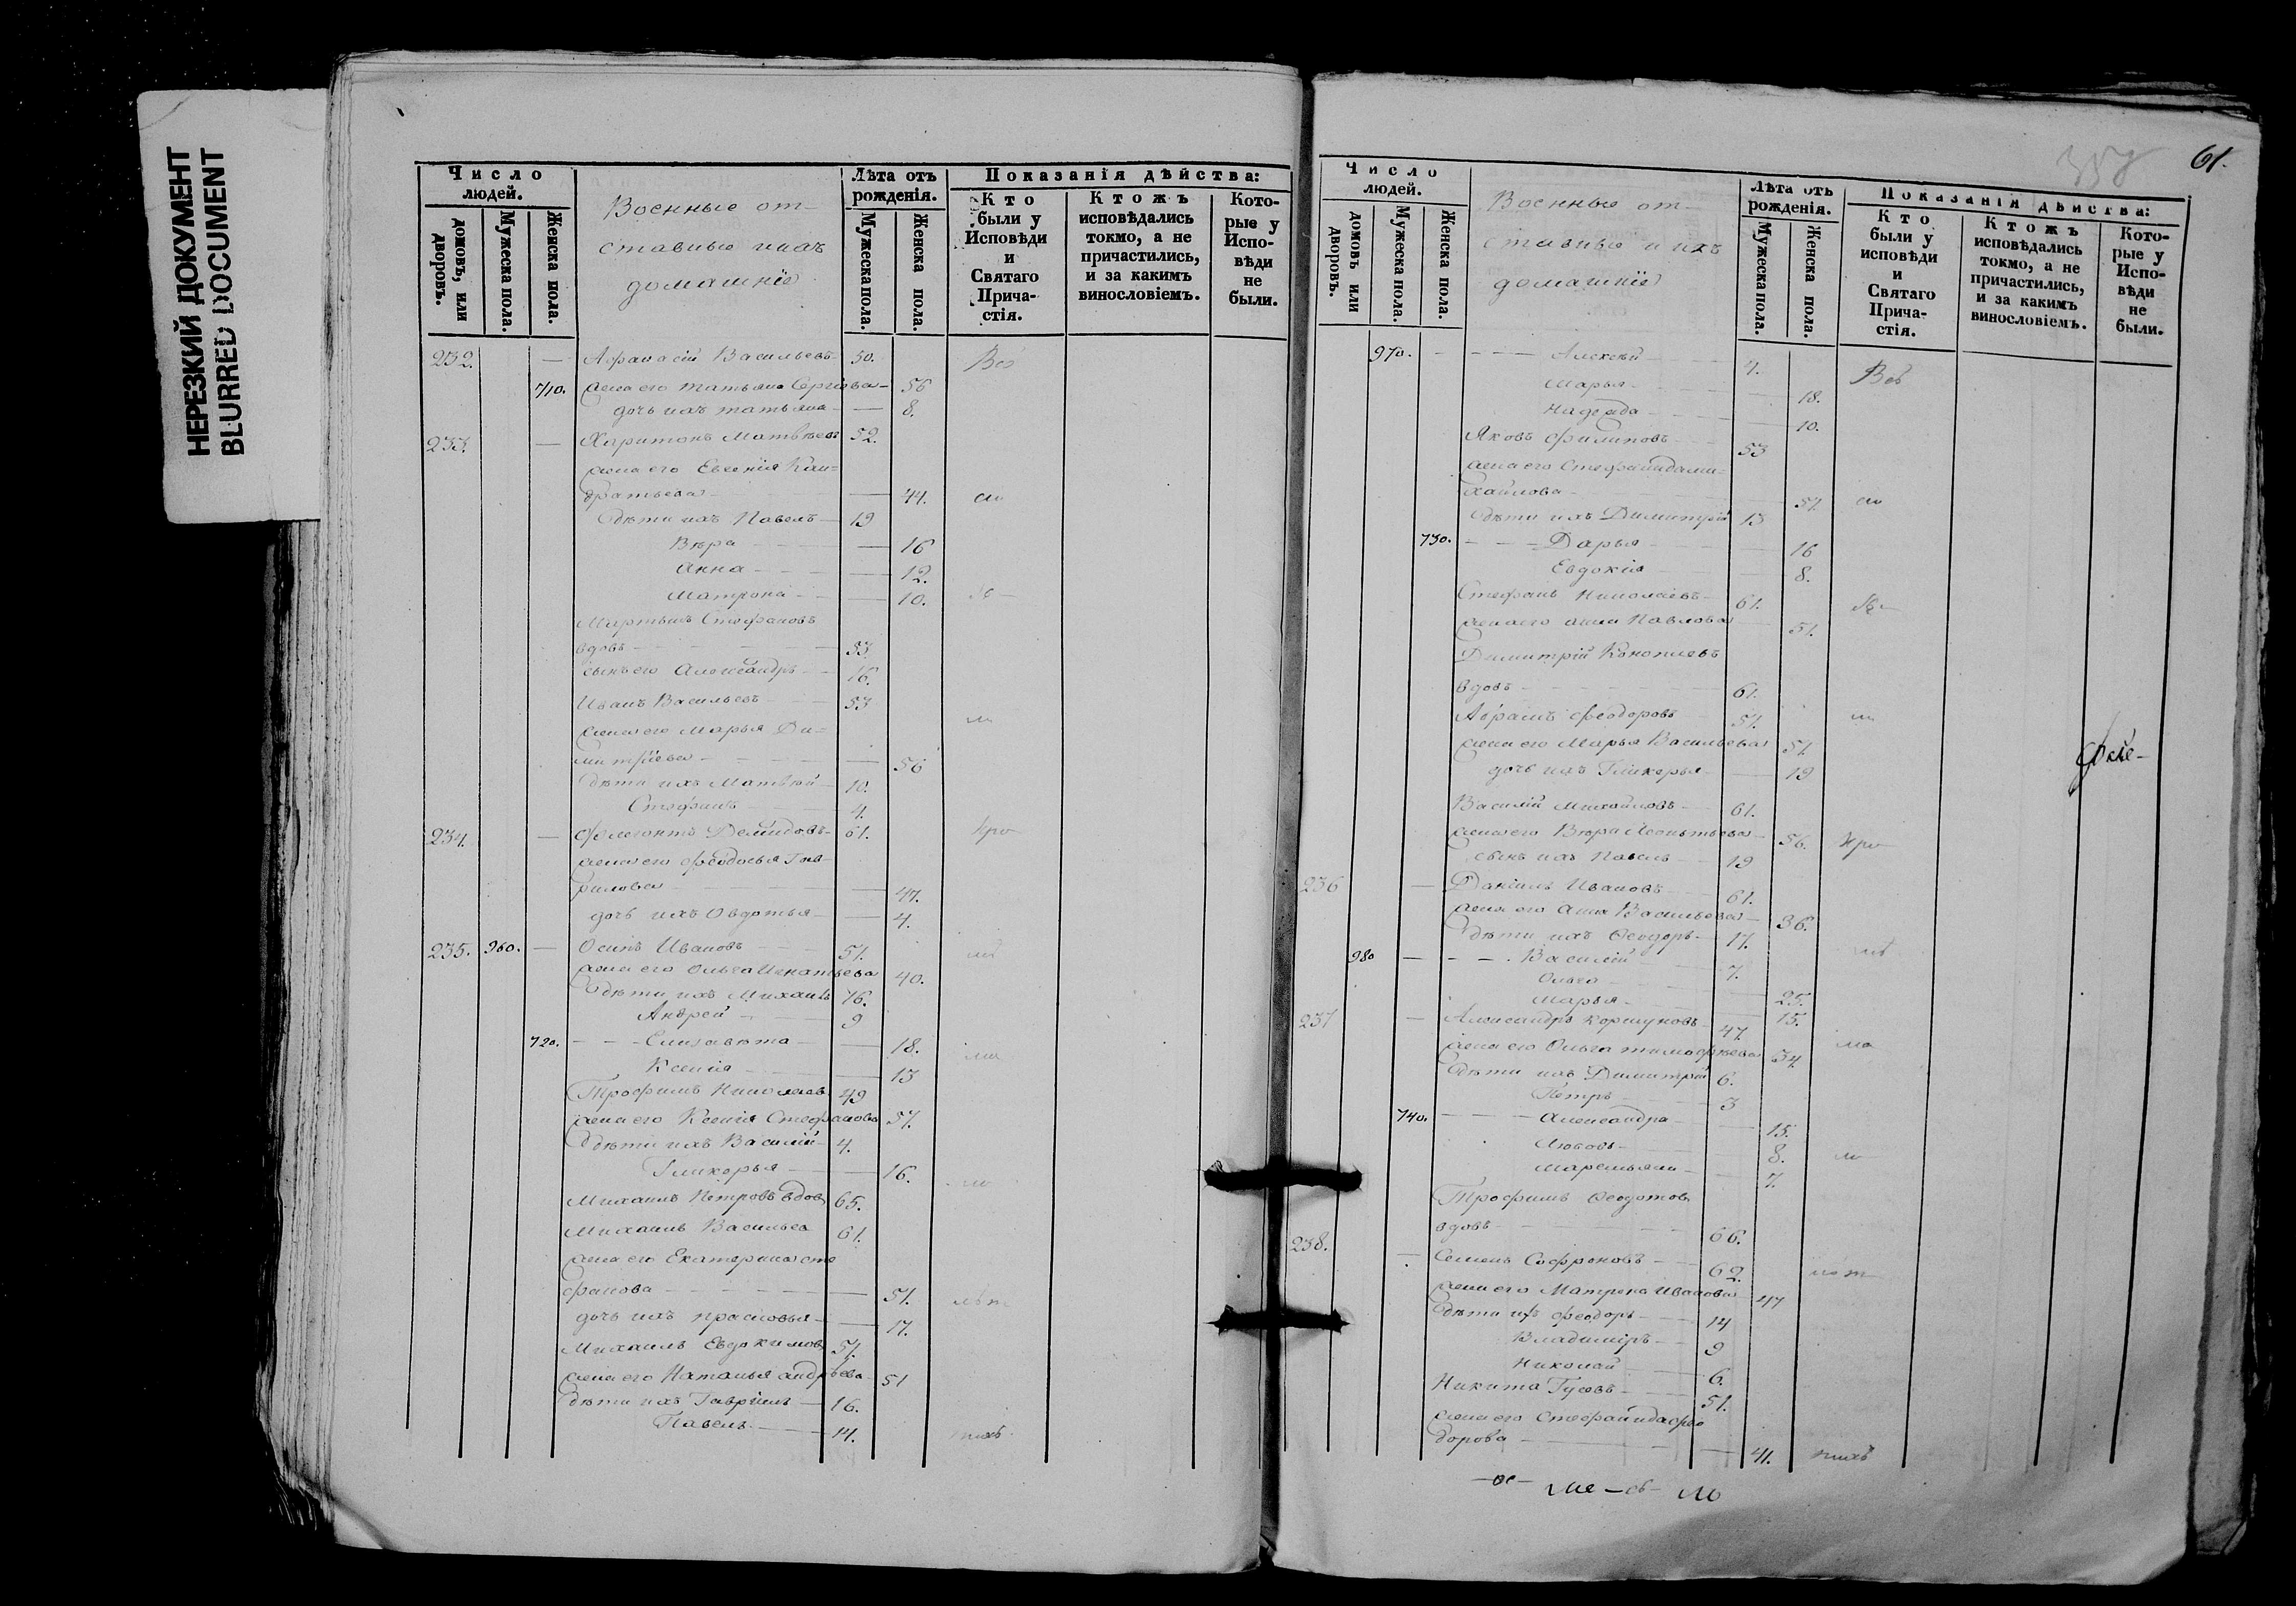 НЕРЕЗКИЙ ДОКУМЕНТ
BLURRED DOCUMENT
Число людей.
домовъ, или дворовъ.
Мужеска пола.
Женска пола.
Военные от-
ставные и ихъ
домашніе
Лѣта отъ рожденія.
Мужеска пола.
Женска пола.
Показанія дѣйства:
Кто были у Исповѣди и Святаго Прича-стія.
Ктожъ исповѣдались токмо, а не причастились, и за какимъ винословіемъ.
Кото-рые у Испо-вѣди не были.
232. — Афанасій Васильевъ 50.
710. жена его Татьяна Сергіева — 56
дочь ихъ Татьяна — 8.
233. — Харитонъ Матвѣевъ 52.
жена его Евгенія Кон-
дратьева — 44.
дѣти ихъ Павелъ — 19
Вѣра — 16
Анна — 12.
Матрона — 10.
Мартынъ Стефановъ
вдовъ — 53
сынъ его Александръ — 16.
Иванъ Васильевъ 53
жена его Марья Ди-
митріева — 56
дѣти ихъ Матвѣй — 10.
Стефанъ 4.
234. — Флегонтъ Демидовъ 61.
жена его Феодосья Гав-
рилова — 47.
дочь ихъ Овдотья — 4.
235. 960. — Осипъ Ивановъ 51.
жена его Ольга Игнатьева 40.
дѣти ихъ Михаилъ 16.
Андрей — 9
720. — Елисавета — 18.
Ксенія — 13
Трофимъ Николаевъ 49
жена его Ксенія Стефанова 51.
дѣти ихъ Василій 4.
Гликерья — 16.
Михаилъ Петровъ вдовъ 65.
Михаилъ Васильевъ 61.
жена его Екатерина Сте
фанова — 51.
дочь ихъ Прасковья — 17.
Михаилъ Евдокимовъ 51.
жена его Наталья Андрѣева 51
дѣти ихъ Гавріилъ — 16.
Павелъ — 14.
61.
Число людей.
домовъ или дворовъ.
Мужеска пола.
Женска пола.
Военные от-
ставные и ихъ
домашніе
Лѣта отъ рожденія.
Мужеска пола.
Женска пола.
Показанія дѣйства:
Кто были у исповѣди и Святаго Прича-стія.
Ктожъ исповѣдались токмо, а не причастились, и за какимъ винословіемъ.
Кото-рые у Испо-вѣди не были.
970. — Алексѣй 4.
Марья — 18.
Надежда — 10.
Яковъ Филиповъ 53
жена его Стефанида Ми-
хайлова — 51.
дѣти ихъ Димитрій 13
730. — Дарья — 16
Евдокія — 8.
Стефанъ Николаевъ 61.
жена его Анна Павлова 51.
Димитрій
вдовъ — 61.
Абрамъ Феодоровъ 51.
жена его Марья Васильева 51.
дочь ихъ Гликерья — 19
Василій Михайловъ 61.
жена его Вѣра Леонтьева 56.
сынъ ихъ Павелъ 19
236 — Даніилъ Ивановъ 61.
жена его Анна Васильева 36.
дѣти ихъ Феодоръ 17.
980 — Василій 7.
Ольга 25.
Марья 15.
237 — Александръ Коршуновъ 47
жена его Ольга Тимофѣева 34
дѣти ихъ Димитрій 6.
Петръ 3
740. — Александра — 15.
Любовь — 8.
7.
Трофимъ Феодотовъ
вдовъ — 66.
238. — Семенъ Софроновъ 62.
жена его Матрена Иванова 47
дѣти ихъ Феодоръ — 14
Владимиръ — 9
Николай — 6.
Никита Гусевъ 51.
жена его Стефанида Фео
дорова — 41.